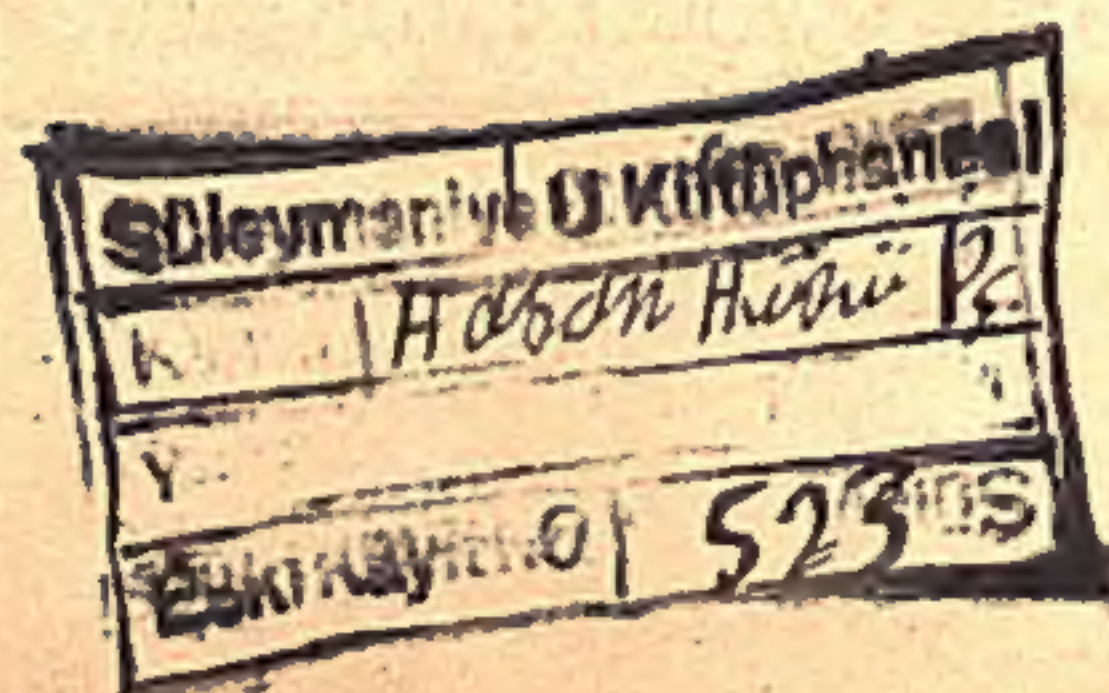 Süleymaniye U Kütüphanesi
K Hasan Hüsnü Pş.
Y
Eski Kayıt No 523